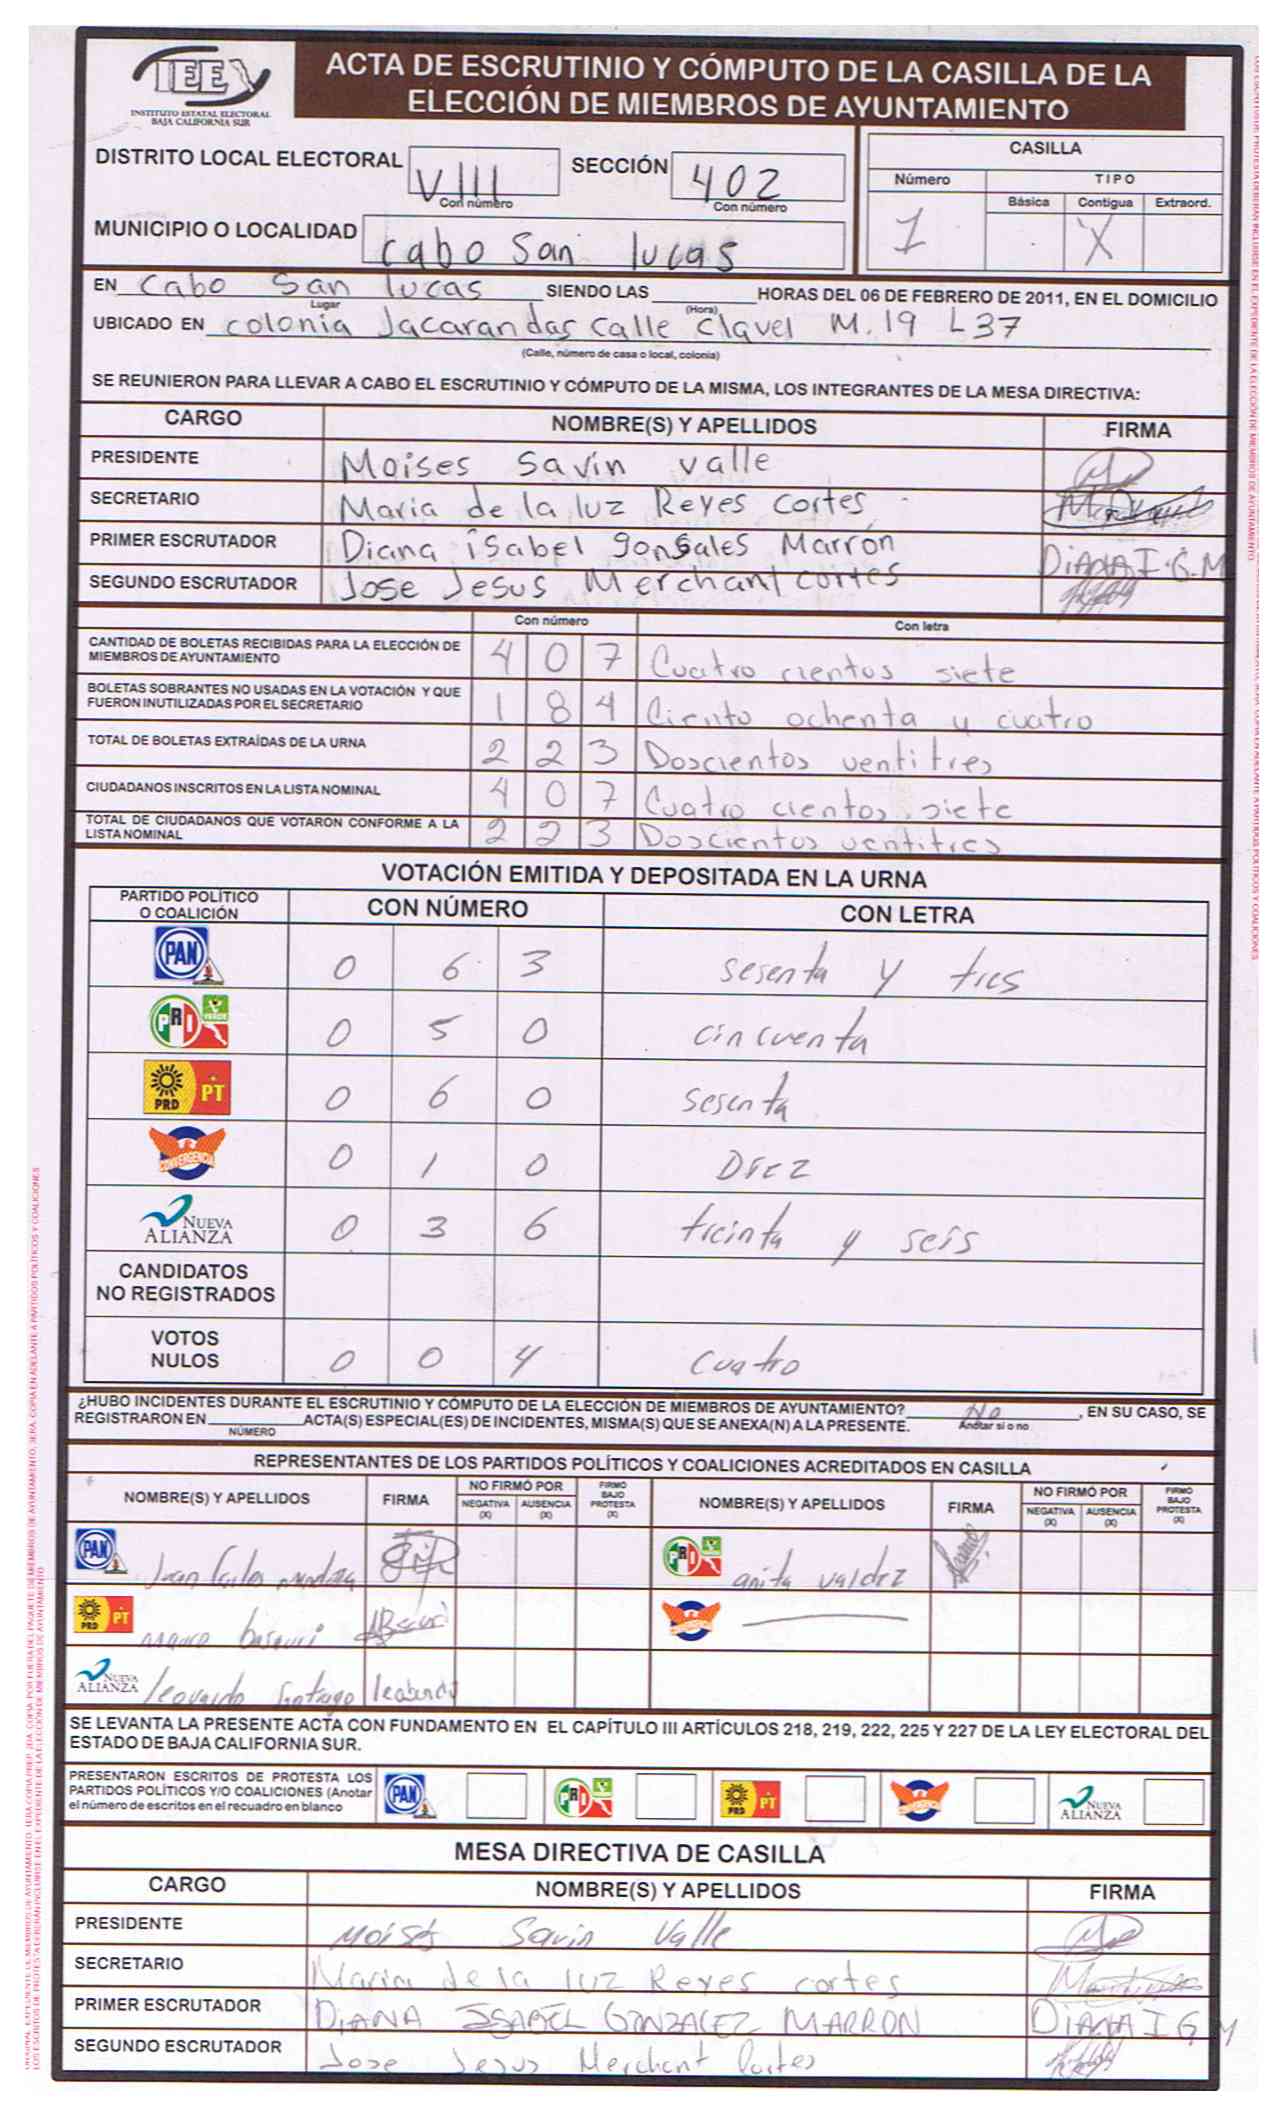 IEE
INSTITUTO ESTATAL ELECTORAL
BAJA CALIFORNIA SUR
ACTA DE ESCRUTINIO Y CÓMPUTO DE LA CASILLA DE LA
ELECCIÓN DE MIEMBROS DE AYUNTAMIENTO
DISTRITO LOCAL ELECTORAL VIII SECCIÓN 402
Con número Con número
MUNICIPIO O LOCALIDAD cabo San lucas
CASILLA
Número TIPO
Básica Contigua Extraord.
1 X
EN Cabo San lucas SIENDO LAS HORAS DEL 06 DE FEBRERO DE 2011, EN EL DOMICILIO
Lugar (Hora)
UBICADO EN colonia Jacarandas calle clavel M.19 L37
(Calle, número de casa o local, colonia)
SE REUNIERON PARA LLEVAR A CABO EL ESCRUTINIO Y CÓMPUTO DE LA MISMA, LOS INTEGRANTES DE LA MESA DIRECTIVA:
CARGO NOMBRE(S) Y APELLIDOS FIRMA
PRESIDENTE Moises Savin valle
SECRETARIO Maria de la luz Reyes cortes
PRIMER ESCRUTADOR Diana isabel gonsales Marron DiANA I.G.M
SEGUNDO ESCRUTADOR Jose Jesus Merchant cortes
Con número Con letra
CANTIDAD DE BOLETAS RECIBIDAS PARA LA ELECCIÓN DE
MIEMBROS DE AYUNTAMIENTO 4 0 7 Cuatro cientos siete
BOLETAS SOBRANTES NO USADAS EN LA VOTACIÓN Y QUE
FUERON INUTILIZADAS POR EL SECRETARIO 1 8 4 Ciento ochenta y cuatro
TOTAL DE BOLETAS EXTRAÍDAS DE LA URNA 2 2 3 Doscientos ventitres
CIUDADANOS INSCRITOS EN LA LISTA NOMINAL 4 0 7 Cuatro cientos siete
TOTAL DE CIUDADANOS QUE VOTARON CONFORME A LA
LISTA NOMINAL 2 2 3 Doscientos ventitres
VOTACIÓN EMITIDA Y DEPOSITADA EN LA URNA
PARTIDO POLÍTICO
O COALICIÓN CON NÚMERO CON LETRA
PAN 0 6 3 sesenta y tres
PRI VERDE 0 5 0 cincuenta
PRD PT 0 6 0 sesenta
CONVERGENCIA 0 1 0 Diez
NUEVA ALIANZA 0 3 6 treinta y seis
CANDIDATOS
NO REGISTRADOS
VOTOS
NULOS 0 0 4 cuatro
¿HUBO INCIDENTES DURANTE EL ESCRUTINIO Y CÓMPUTO DE LA ELECCIÓN DE MIEMBROS DE AYUNTAMIENTO? No , EN SU CASO, SE
REGISTRARON EN ACTA(S) ESPECIAL(ES) DE INCIDENTES, MISMA(S) QUE SE ANEXA(N) A LA PRESENTE. Anotar si o no
NÚMERO
REPRESENTANTES DE LOS PARTIDOS POLÍTICOS Y COALICIONES ACREDITADOS EN CASILLA
NOMBRE(S) Y APELLIDOS FIRMA NO FIRMÓ POR NEGATIVA (X) AUSENCIA (X) FIRMÓ BAJO PROTESTA (X) NOMBRE(S) Y APELLIDOS FIRMA NO FIRMÓ POR NEGATIVA (X) AUSENCIA (X) FIRMÓ BAJO PROTESTA (X)
PAN Juan Carlos mendoza PRI anita valdez
PRD PT CONVERGENCIA
NUEVA ALIANZA
SE LEVANTA LA PRESENTE ACTA CON FUNDAMENTO EN EL CAPÍTULO III ARTÍCULOS 218, 219, 222, 225 Y 227 DE LA LEY ELECTORAL DEL
ESTADO DE BAJA CALIFORNIA SUR.
PRESENTARON ESCRITOS DE PROTESTA LOS
PARTIDOS POLÍTICOS Y/O COALICIONES (Anotar
el número de escritos en el recuadro en blanco
PAN PRI PRD PT CONVERGENCIA NUEVA ALIANZA
MESA DIRECTIVA DE CASILLA
CARGO NOMBRE(S) Y APELLIDOS FIRMA
PRESIDENTE Moisés Savin Valle
SECRETARIO Maria de la luz Reyes cortes
PRIMER ESCRUTADOR DIANA ISABEL GONZALEZ MARRON DIANA I G M
SEGUNDO ESCRUTADOR Jose Jesus Merchant Cortes